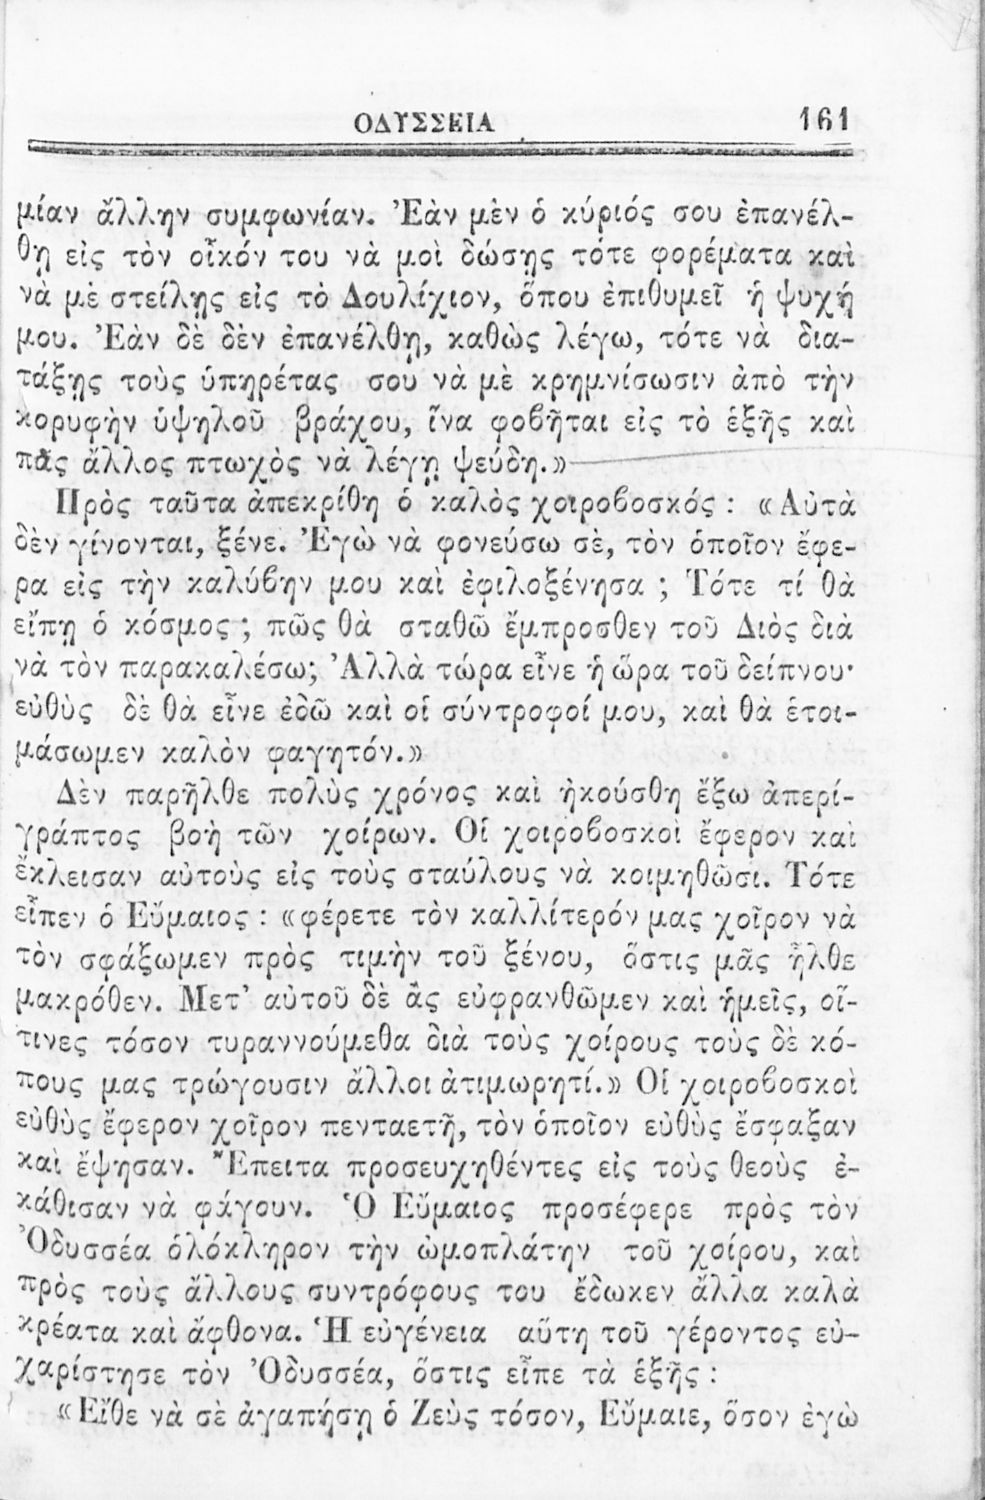 ΟΔΥΣΣΕΙΑ 161
μίαν ἄλλην συμφωνίαν. Ἐὰν μὲν ὁ κύριός σου ἐπανέλ-
θῃ εἰς τὸν οἶκόν του νὰ μοὶ δώσῃς τότε φορέματα καὶ
νὰ μὲ στείλῃς εἰς τὸ Δουλίχιον, ὅπου ἐπιθυμεῖ ἡ ψυχή
μου. Ἐὰν δὲ δὲν ἐπανέλθῃ, καθὼς λέγω, τότε νὰ δια-
τάξῃς τοὺς ὑπηρέτας σου νὰ μὲ κρημνίσωσιν ἀπὸ τὴν
κορυφὴν ὑψηλοῦ βράχου, ἵνα φοβῆται εἰς τὸ ἑξῆς καὶ
πᾶς ἄλλος πτωχὸς νὰ λέγῃ ψεύδη.»
Πρὸς ταῦτα ἀπεκρίθη ὁ καλὸς χοιροβοσκός : «Αὐτὰ
δὲν γίνονται, ξένε. Ἐγὼ νὰ φονεύσω σὲ, τὸν ὁποῖον ἔφε-
ρα εἰς τὴν καλύβην μου καὶ ἐφιλοξένησα ; Τότε τί θὰ
εἴπῃ ὁ κόσμος ; πῶς θὰ σταθῶ ἔμπροσθεν τοῦ Διὸς διὰ
νὰ τὸν παρακαλέσω; Ἀλλὰ τώρα εἶνε ἡ ὥρα τοῦ δείπνου·
εὐθὺς δὲ θὰ εἶνε ἐδῶ καὶ οἱ σύντροφοί μου, καὶ θὰ ἑτοι-
μάσωμεν καλὸν φαγητόν.»
Δὲν παρῆλθε πολὺς χρόνος καὶ ἠκούσθη ἔξω ἀπερί-
γράπτος βοὴ τῶν χοίρων. Οἱ χοιροβοσκοὶ ἔφερον καὶ
ἔκλεισαν αὐτοὺς εἰς τοὺς σταύλους νὰ κοιμηθῶσι. Τότε
εἶπεν ὁ Εὔμαιος : «φέρετε τὸν καλλίτερόν μας χοῖρον νὰ
τὸν σφάξωμεν πρὸς τιμὴν τοῦ ξένου, ὅστις μᾶς ἦλθε
μακρόθεν. Μετ' αὐτοῦ δὲ ἂς εὐφρανθῶμεν καὶ ἡμεῖς, οἵ-
τινες τόσον τυραννούμεθα διὰ τοὺς χοίρους τοὺς δὲ κό-
πους μας τρώγουσιν ἄλλοι ἀτιμωρητί.» Οἱ χοιροβοσκοὶ
εὐθὺς ἔφερον χοῖρον πενταετῆ, τὸν ὁποῖον εὐθὺς ἔσφαξαν
καὶ ἔψησαν. Ἔπειτα προσευχηθέντες εἰς τοὺς θεοὺς ἐ-
κάθισαν νὰ φάγουν. Ὁ Εὔμαιος προσέφερε πρὸς τὸν
Ὀδυσσέα ὁλόκληρον τὴν ὠμοπλάτην τοῦ χοίρου, καὶ
πρὸς τοὺς ἄλλους συντρόφους του ἔδωκεν ἄλλα καλὰ
κρέατα καὶ ἄφθονα. Ἡ εὐγένεια αὕτη τοῦ γέροντος εὐ-
χαρίστησε τὸν Ὀδυσσέα, ὅστις εἶπε τὰ ἑξῆς :
«Εἴθε νὰ σὲ ἀγαπήσῃ ὁ Ζεὺς τόσον, Εὔμαιε, ὅσον ἐγὼ